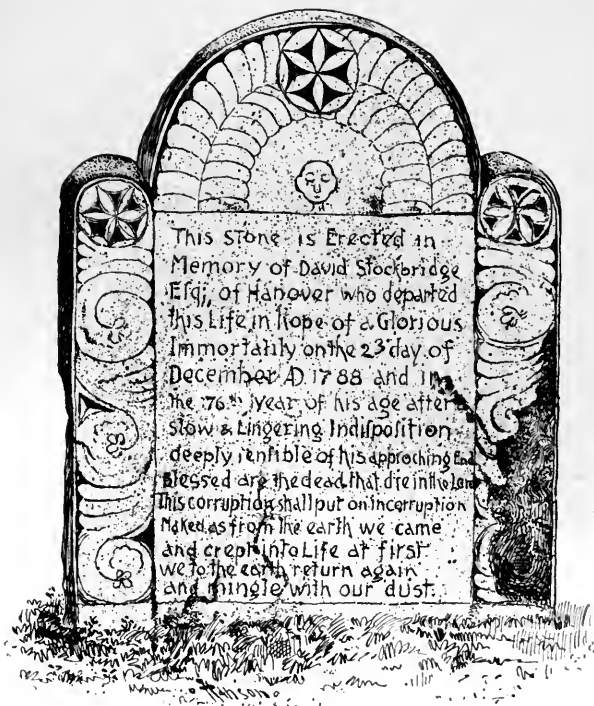 This Stone is Erected in
Memory of David Stockbridge
Esq; of Hanover who departed
this Life in hope of a Glorious
Immortality on the 23ᵈ day of
December AD. 1788 and in
the 76.ᵗʰ year of his age after a
slow & Lingering Indisposition
deeply senſible of his approching End
Blessed are the dead that die in the Lord
This corruption shall put on incorruption
Naked as from the earth we came
and crept into Life at first
we to the earth return again
and mingle with our dust.